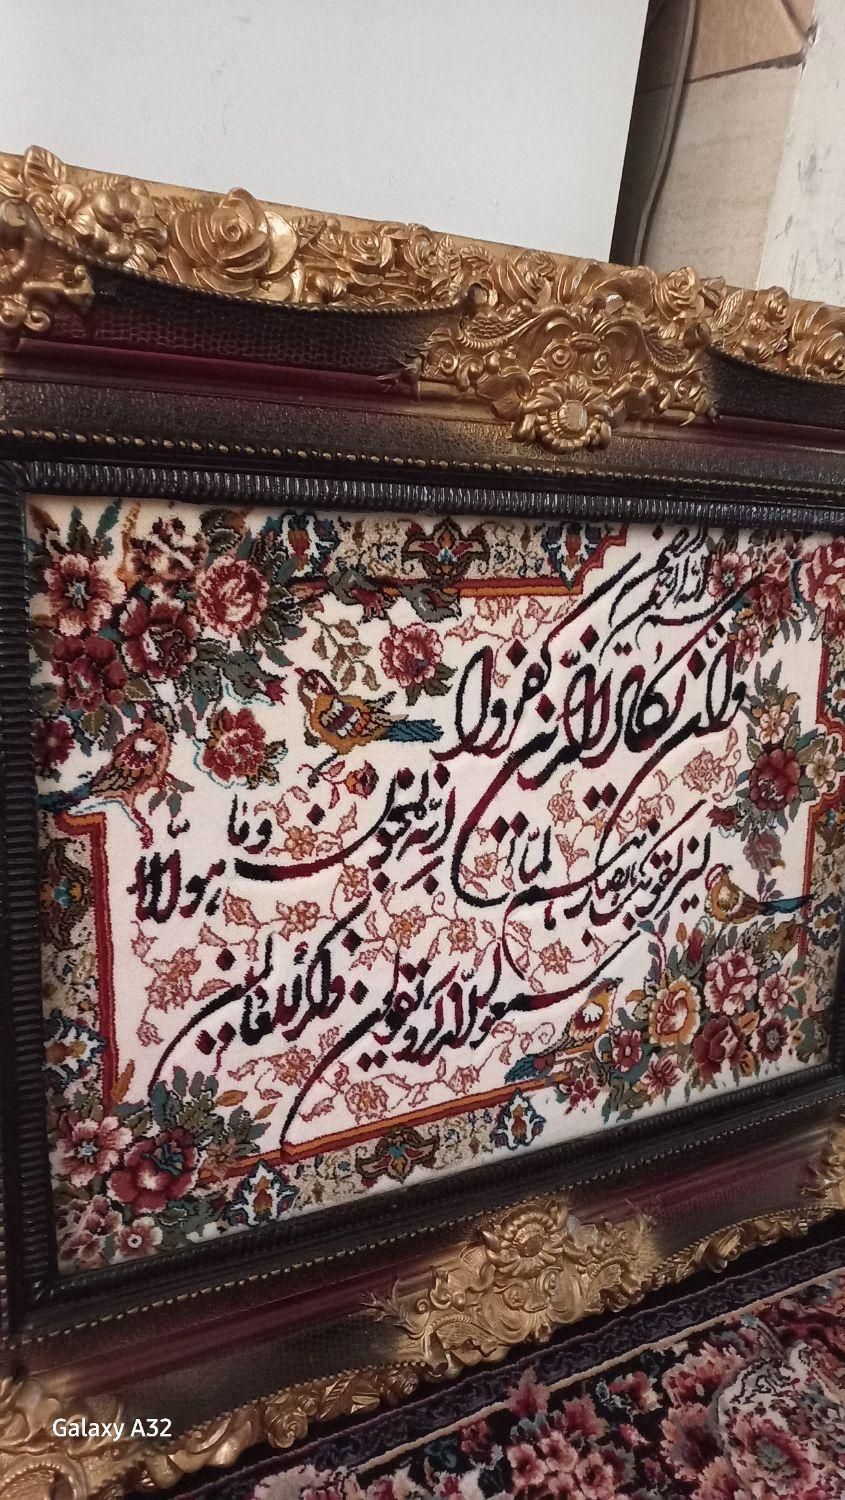 بسم الله الرحمن الرحیم
وان یکاد الذین کفروا
لیزلقونک بابصارهم لما
سمعوا الذکر و یقولون
انه لمجنون وما هو الا
ذکر للعالمین
Galaxy A32